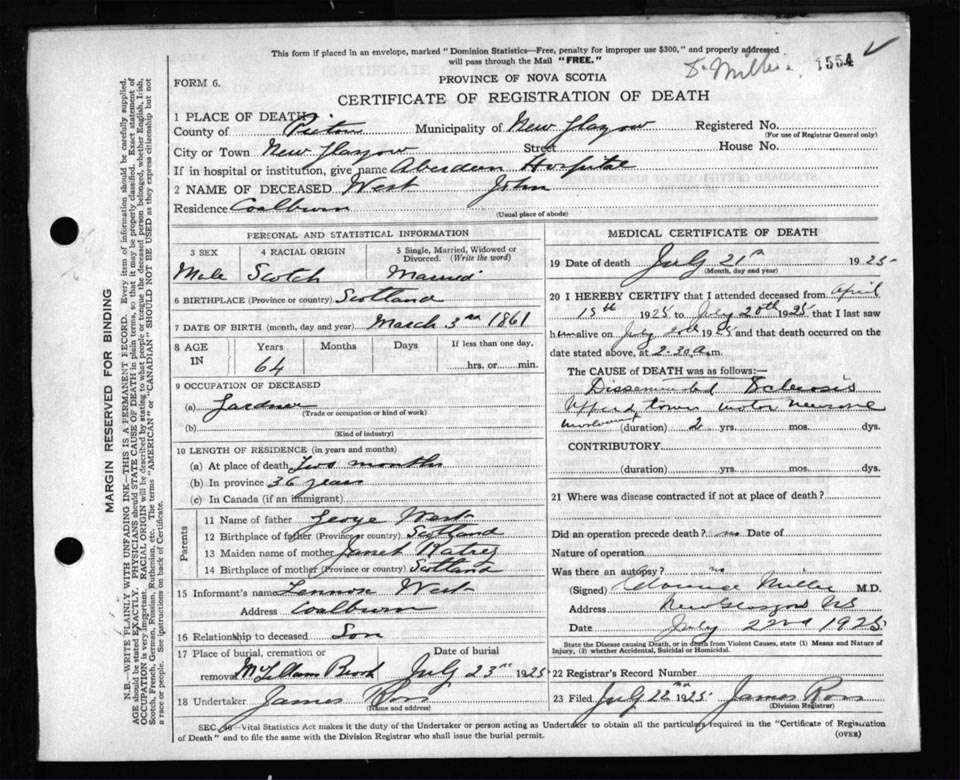 This form if placed in an envelope, marked "Dominion Statistics—Free, penalty for improper use $300," and properly addressed
will pass through the Mail "FREE."
Dr. Miller. 1554
FORM 6.
PROVINCE OF NOVA SCOTIA
CERTIFICATE OF REGISTRATION OF DEATH
1 PLACE OF DEATH
County of Pictou Municipality of New Glasgow Registered No.
(For use of Registrar General only)
City or Town New Glasgow Street House No.
If in hospital or institution, give name Aberdeen Hospital
2 NAME OF DECEASED West John
Residence Coalburn
(Usual place of abode)
MARGIN RESERVED FOR BINDING
N.B.—WRITE PLAINLY WITH UNFADING INK—THIS IS A PERMANENT RECORD. Every item of information should be carefully supplied.
AGE should be stated EXACTLY. PHYSICIANS should STATE CAUSE OF DEATH in plain terms, so that it may be properly classified. Exact statement of
OCCUPATION is very important. RACIAL ORIGIN will be described by stating to what people or tongue the deceased person belonged, whether English, Irish,
Scotch, French, German, Russian, Ruthenian, etc. The terms "AMERICAN" or "CANADIAN" SHOULD NOT BE USED as they express citizenship but not
a race or people. See instructions on back of Certificate.
PERSONAL AND STATISTICAL INFORMATION
3 SEX 4 RACIAL ORIGIN 5 Single, Married, Widowed or
Divorced. (Write the word)
Male Scotch Married
6 BIRTHPLACE (Province or country) Scotland
7 DATE OF BIRTH (month, day and year) March 3rd 1861
8 AGE IN Years Months Days If less than one day,
64 hrs. or min.
9 OCCUPATION OF DECEASED
(a) Gardner
(Trade or occupation or kind of work)
(b)
(Kind of industry)
10 LENGTH OF RESIDENCE (in years and months)
(a) At place of death Two months
(b) In province 36 years
(c) In Canada (if an immigrant)
Parents
11 Name of father George West
12 Birthplace of father (Province or country) Scotland
13 Maiden name of mother Janet
14 Birthplace of mother (Province or country) Scotland
15 Informant's name Lennose West
Address Coalburn
16 Relationship to deceased Son
17 Place of burial, cremation or Date of burial
removal McLellans Brook July 23rd 1925
18 Undertaker James Ross
(Name and address)
MEDICAL CERTIFICATE OF DEATH
19 Date of death July 21st 1925
(Month, day and year)
20 I HEREBY CERTIFY that I attended deceased from April
15th 1925 to July 20th 1925 that I last saw
him alive on July 20th 1925 and that death occurred on
the date stated above, at 2.30 a.m.
The CAUSE of DEATH was as follows:
Disseminated Sclerosis
motor neurone
(duration) 2 yrs. mos. dys.
CONTRIBUTORY.
(duration) yrs. mos. dys.
21 Where was disease contracted if not at place of death?
Did an operation precede death? no Date of
Nature of operation
Was there an autopsy? no
(Signed) Clarence Miller M.D.
Address New Glasgow NS
Date July 22nd 1925
State the Disease causing Death, or in death from Violent Causes, state (1) Means and Nature of
Injury, (2) whether Accidental, Suicidal or Homicidal.
22 Registrar's Record Number
23 Filed July 22nd 1925 James Ross
(Division Registrar)
SEC. —Vital Statistics Act makes it the duty of the Undertaker or person acting as Undertaker to obtain all the particulars required in the "Certificate of Registration
of Death" and to file the same with the Division Registrar who shall issue the burial permit.
(OVER)